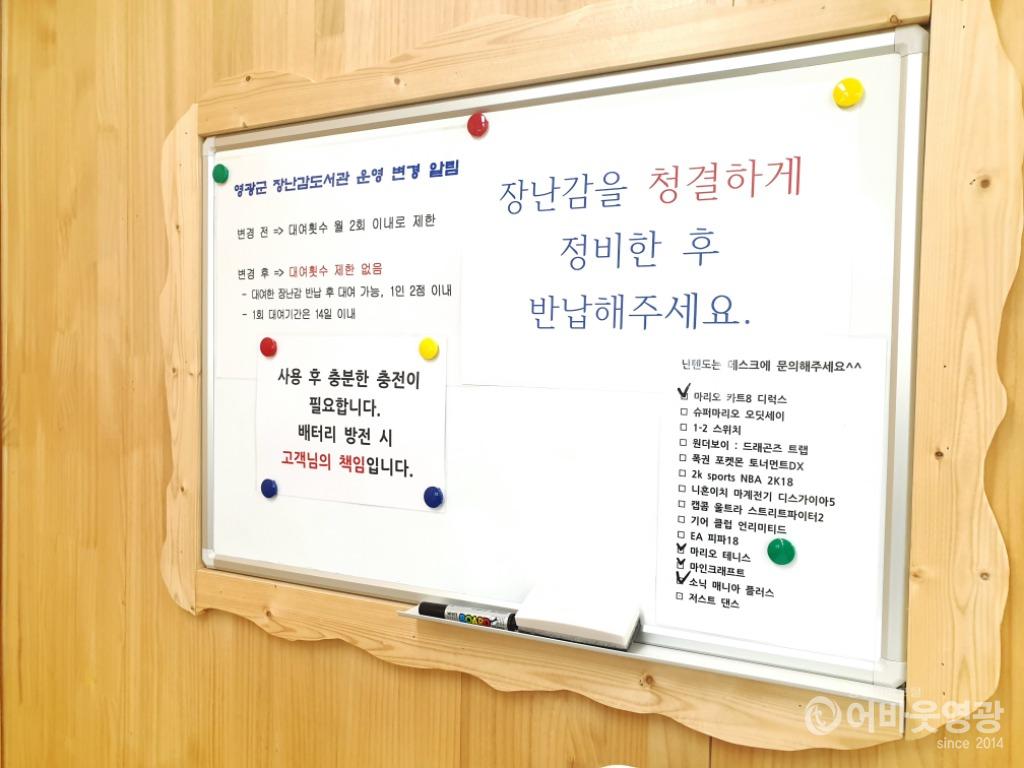 영광군 장난감도서관 운영 변경 알림
변경 전 => 대여횟수 월 2회 이내로 제한
변경 후 => 대여횟수 제한 없음
- 대여한 장난감 반납 후 대여 가능, 1인 2점 이내
- 1회 대여기간은 14일 이내
장난감을 청결하게
정비한 후
반납해주세요.
사용 후 충분한 충전이
필요합니다.
배터리 방전 시
고객님의 책임입니다.
닌텐도는 데스크에 문의해주세요^^
마리오 카트8 디럭스
슈퍼마리오 오딧세이
1-2 스위치
원더보이 : 드래곤즈 트랩
폭권 포켓몬 토너먼트DX
2k sports NBA 2K18
니혼이치 마계전기 디스가이아5
캡콤 울트라 스트리트파이터2
기어 클럽 언리미티드
EA 피파18
마리오 테니스
마인크래프트
소닉 매니아 플러스
저스트 댄스
BOARD
어바웃영광
since 2014